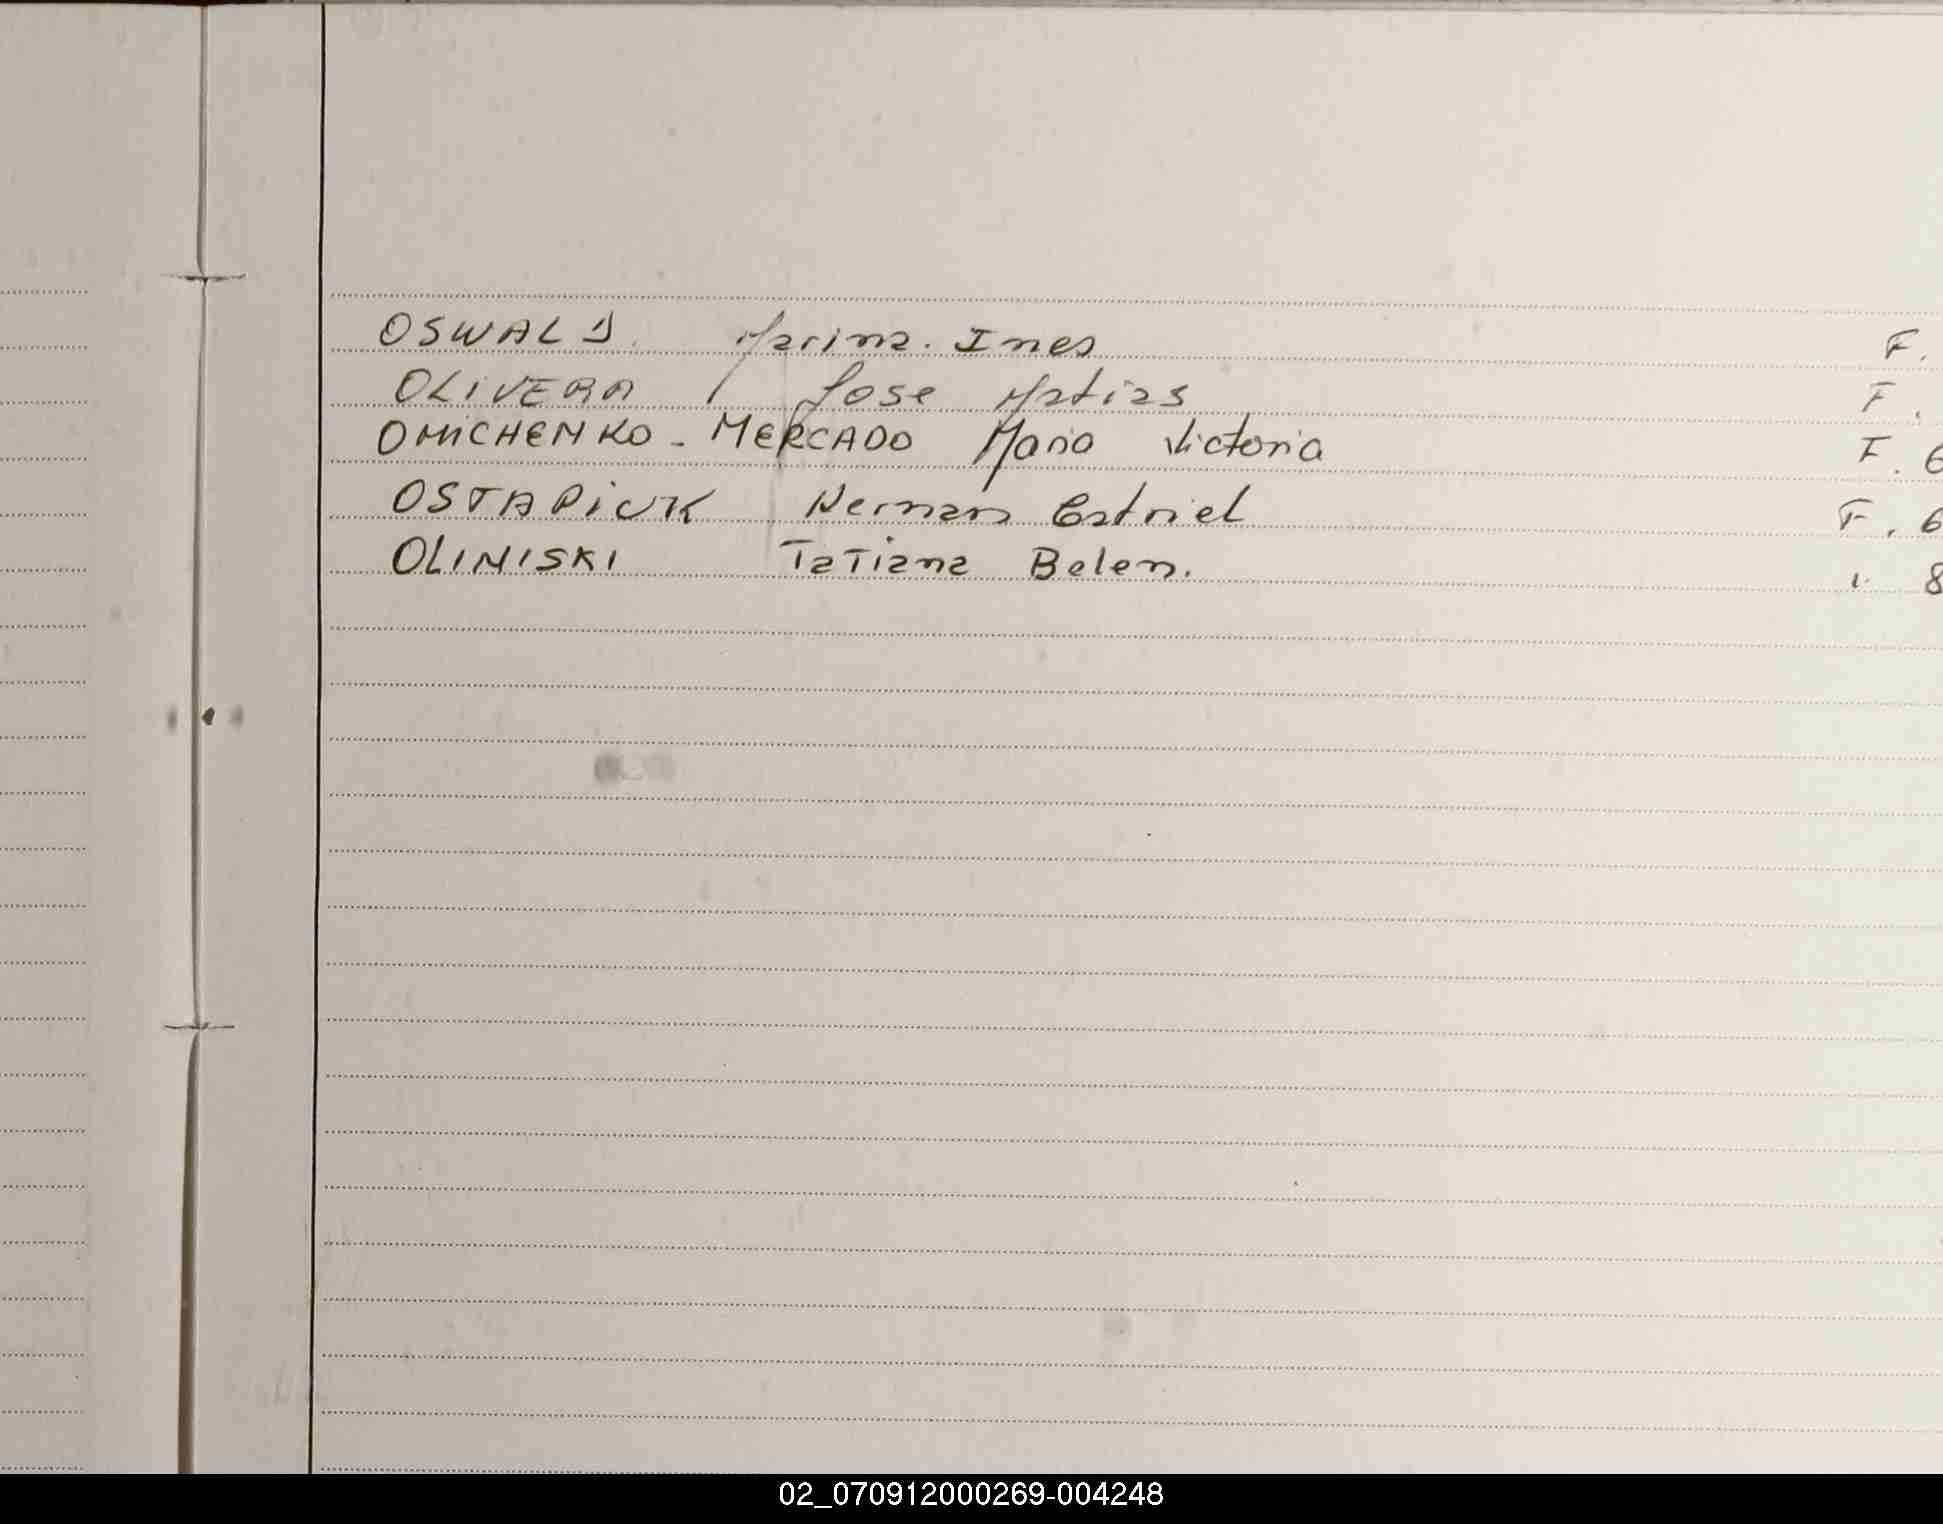 OSWALD. Marina. Ines F.
OLIVERA Jose Matias F.
OMICHENKO - MERCADO Maria Victoria F. 6
OSTAPIUK Hernan Gabriel F. 6
OLINISKI Tatiana Belen. 8
02_070912000269-004248